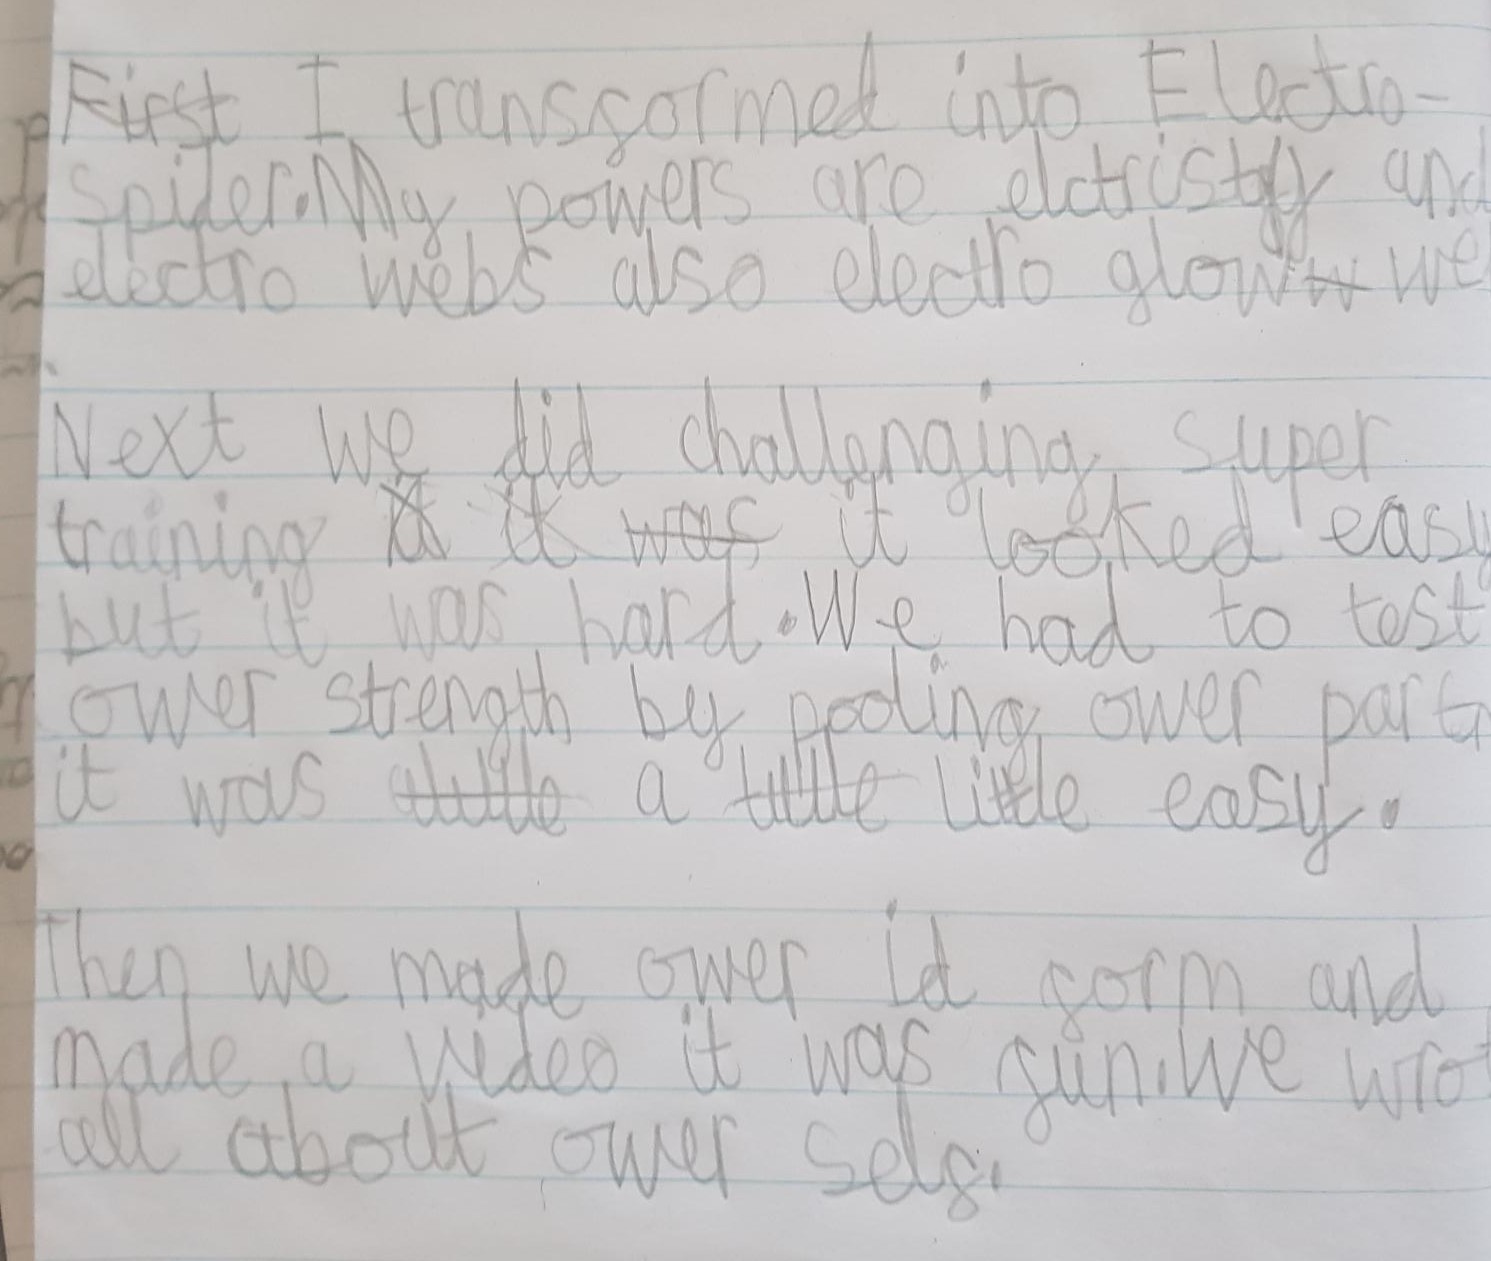 First I transformed into Electro-
spider. My powers are elctristy and
electro webs also electro glow we
Next we did challenging super
training it looked easy
but it was hard. We had to test
ower strength by pooling ower part
it was a little easy.
Then we made ower id form and
made a video it was fun. We wrot
all about ower self.